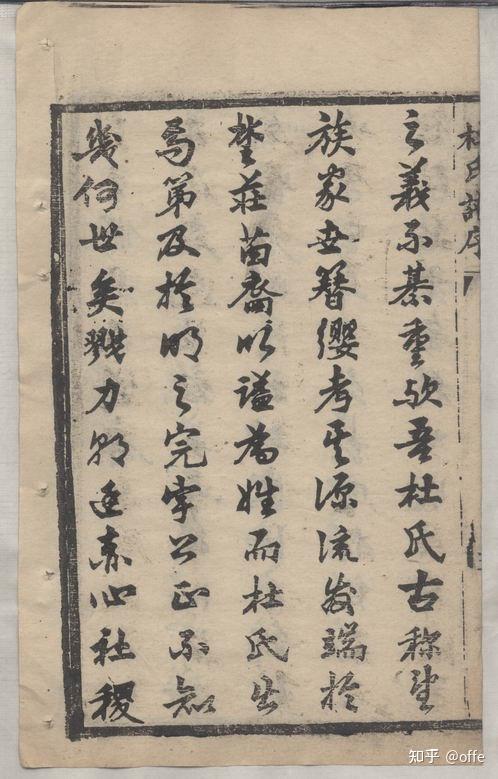 杜氏譜序
之義不綦重歟吾杜氏古称望
族家世簪纓考其源流發端於
楚莊苗裔以謚為姓而杜氏出
焉第及於明之完字公正不知
幾何世矣戮力朝廷赤心社稷
知乎 @offe